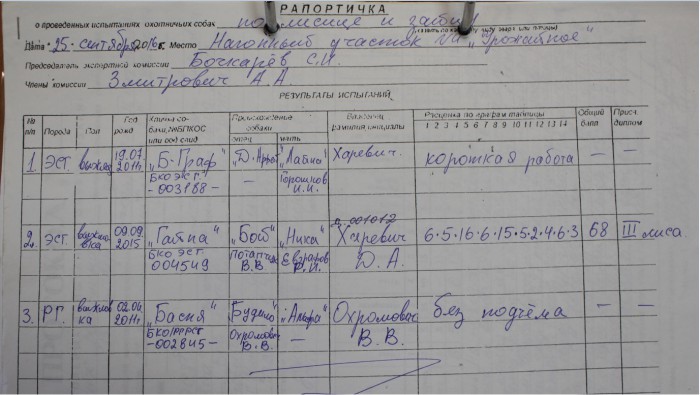 РАПОРТИЧКА
о проведенных испытаниях охотничьих собак по лисице и зайцу
Дата "25" сентября 2016г. Место Нагонный участок №1 "Урожайное"
Председатель экспертной комиссии Бочкарёв С.И.
Члены комиссии Змитрович А.А.
РЕЗУЛЬТАТЫ ИСПЫТАНИЙ
№ п/п Порода Пол Год рожд Кличка собаки, №БПКОС или род.свид Происхождение собаки отец мать Владелец фамилия, инициалы Расценка по графам таблицы 1 2 3 4 5 6 7 8 9 10 11 12 13 14 Общий балл Присв. диплом
1 ЭСГ. выжлец 19.07. 2011г. "Б-Граф" "Лайна" Харевич. короткая работа — —
БКО ЭСГ. -003188- — Горошков И.И.
2. ЭСГ. выжловка 09.09. 2015 "Гайна" "Бой" "Ника" 001012 Харевич 6·5·16·6·15·5·2·4·6·3 68 III лиса
БКО ЭСГ 004549 В.В. Д.А.
3. Р.Г. выжловка 02.04. 2011г. "Басня" Охромова без подъёма — —
-002845- В.В. — В.В.